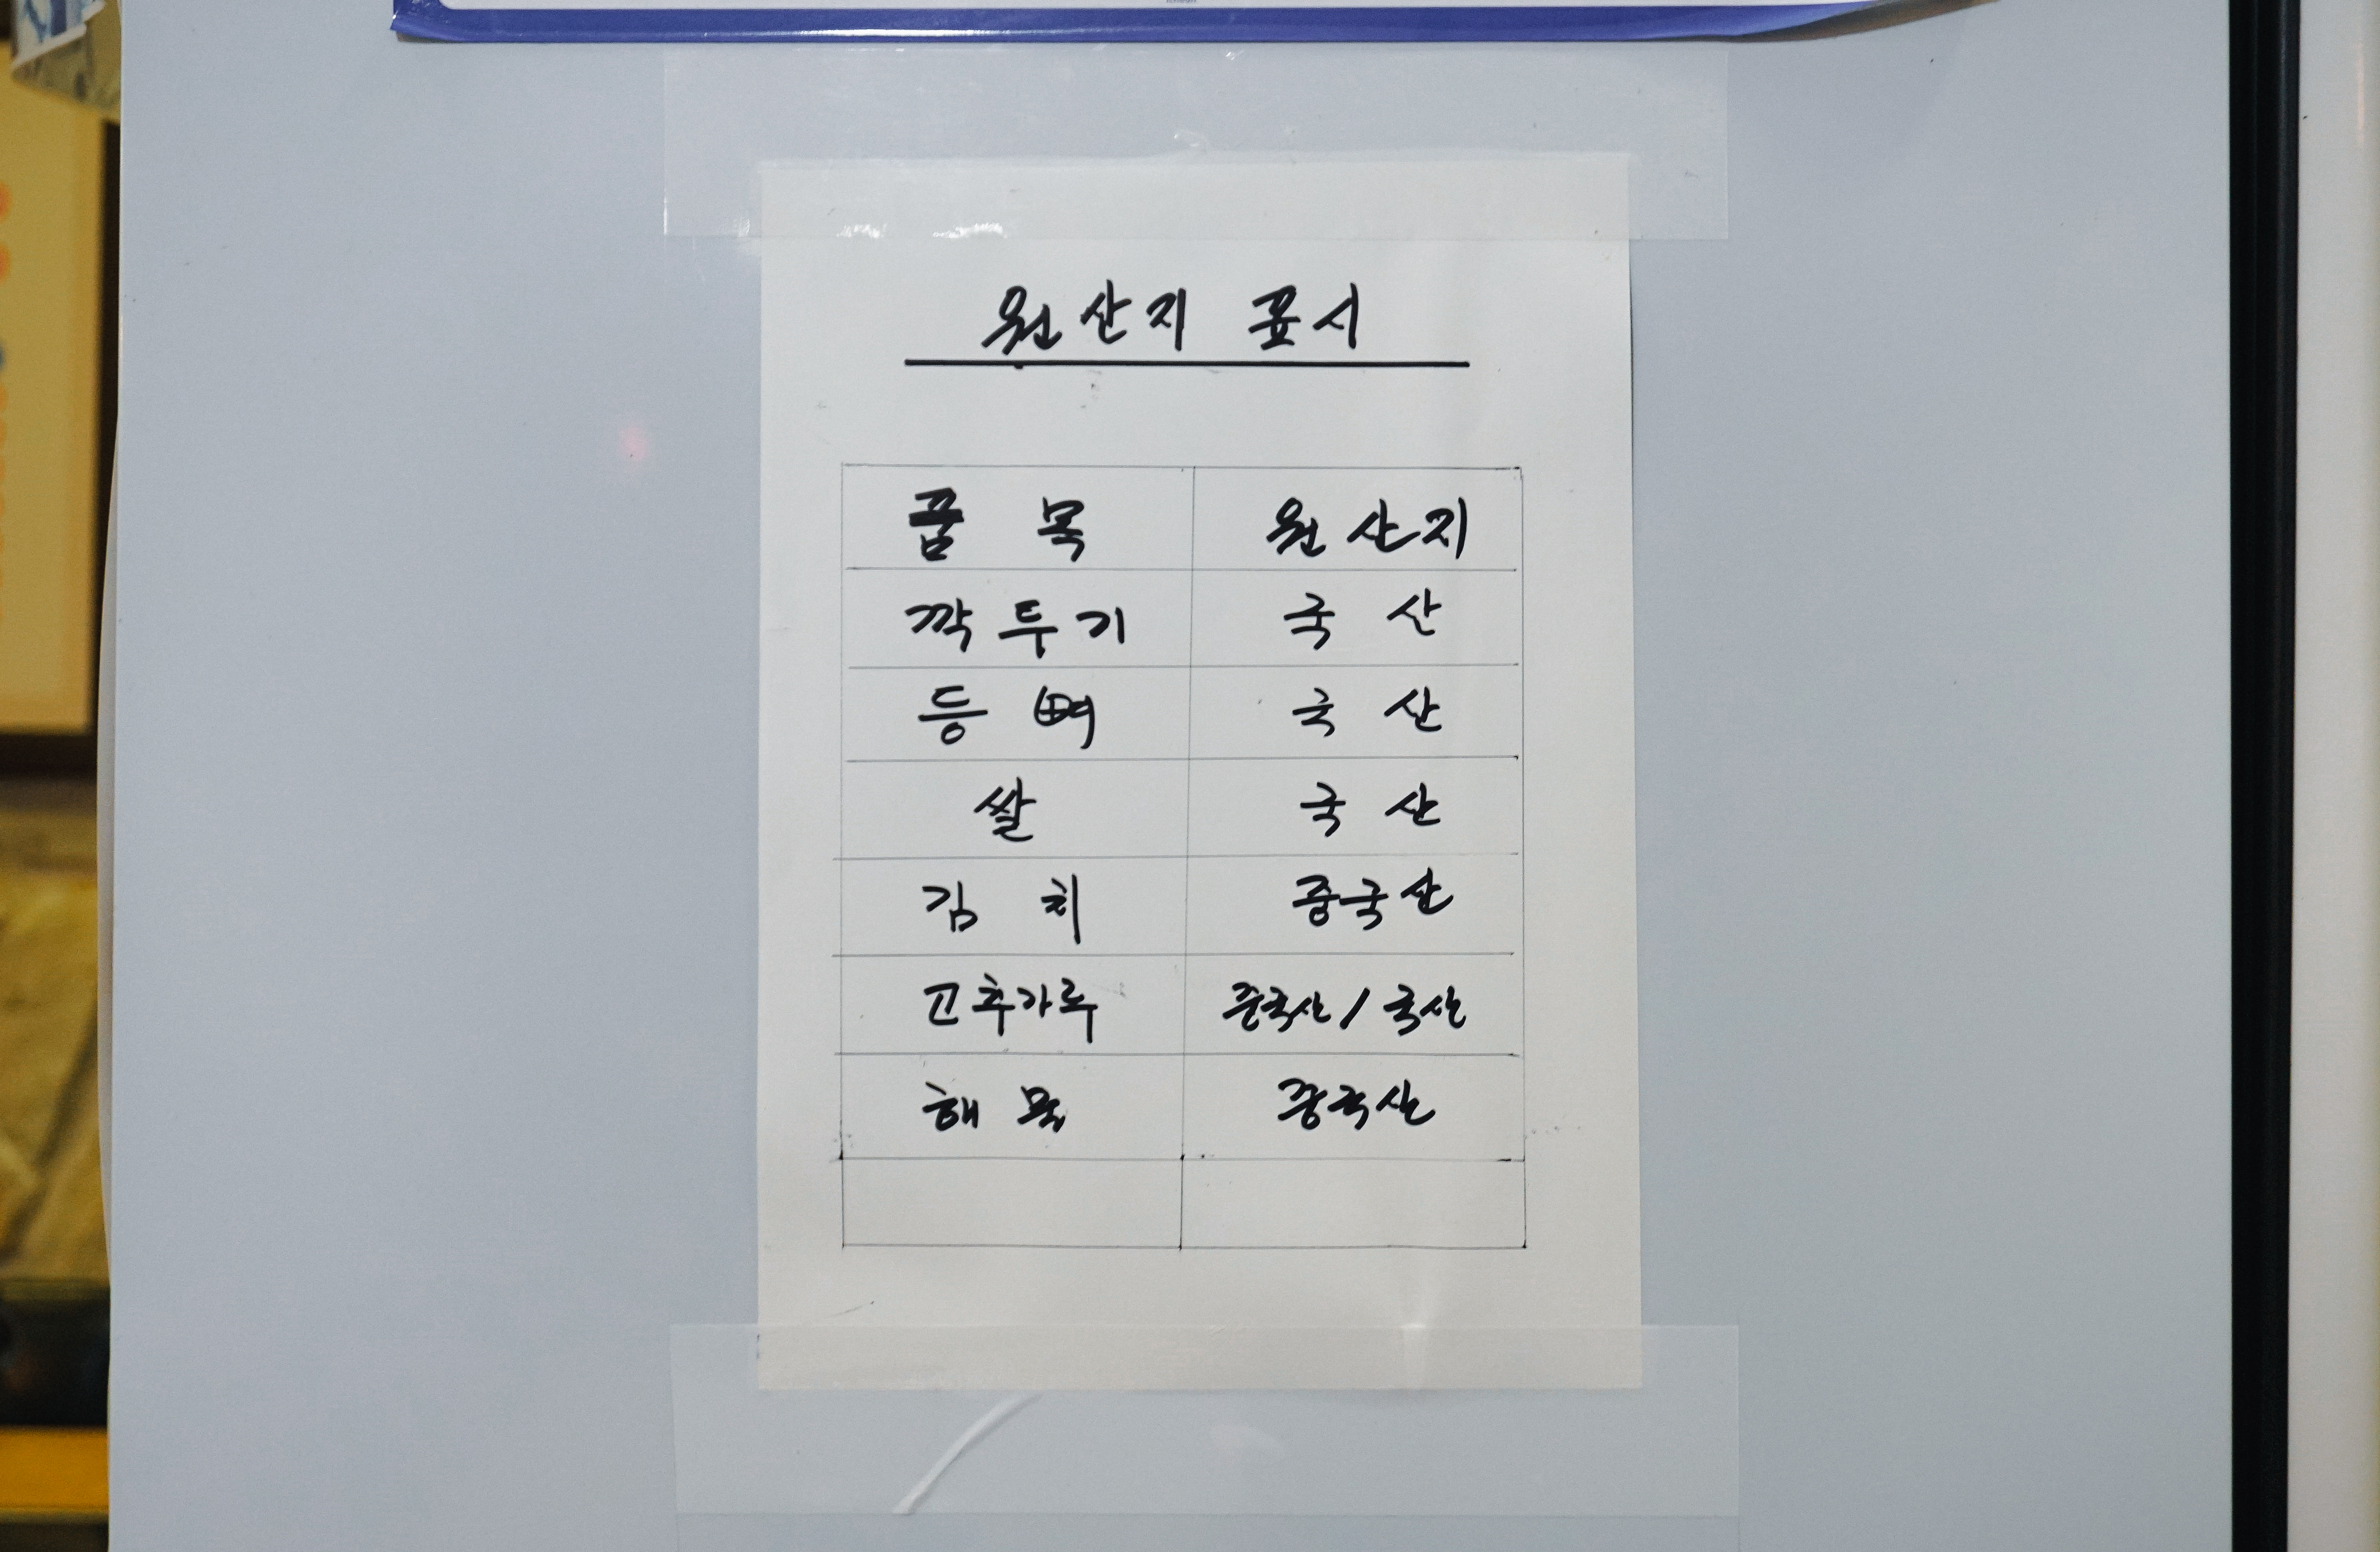 원산지 표시
품 목 원산지
깍두기 국 산
등 뼈 국 산
쌀 국 산
김 치 중국산
고추가루 중국산 / 국산
해 묵 중국산